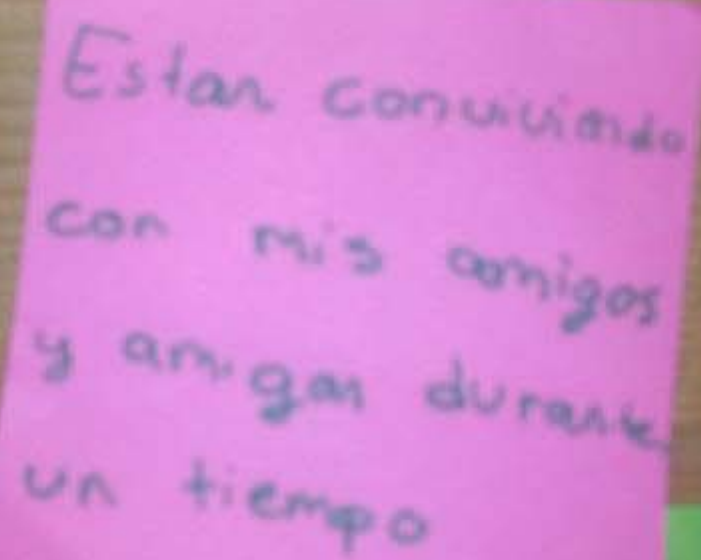 Estar conviviendo
con mis amigos
y amigas durante
un tiempo